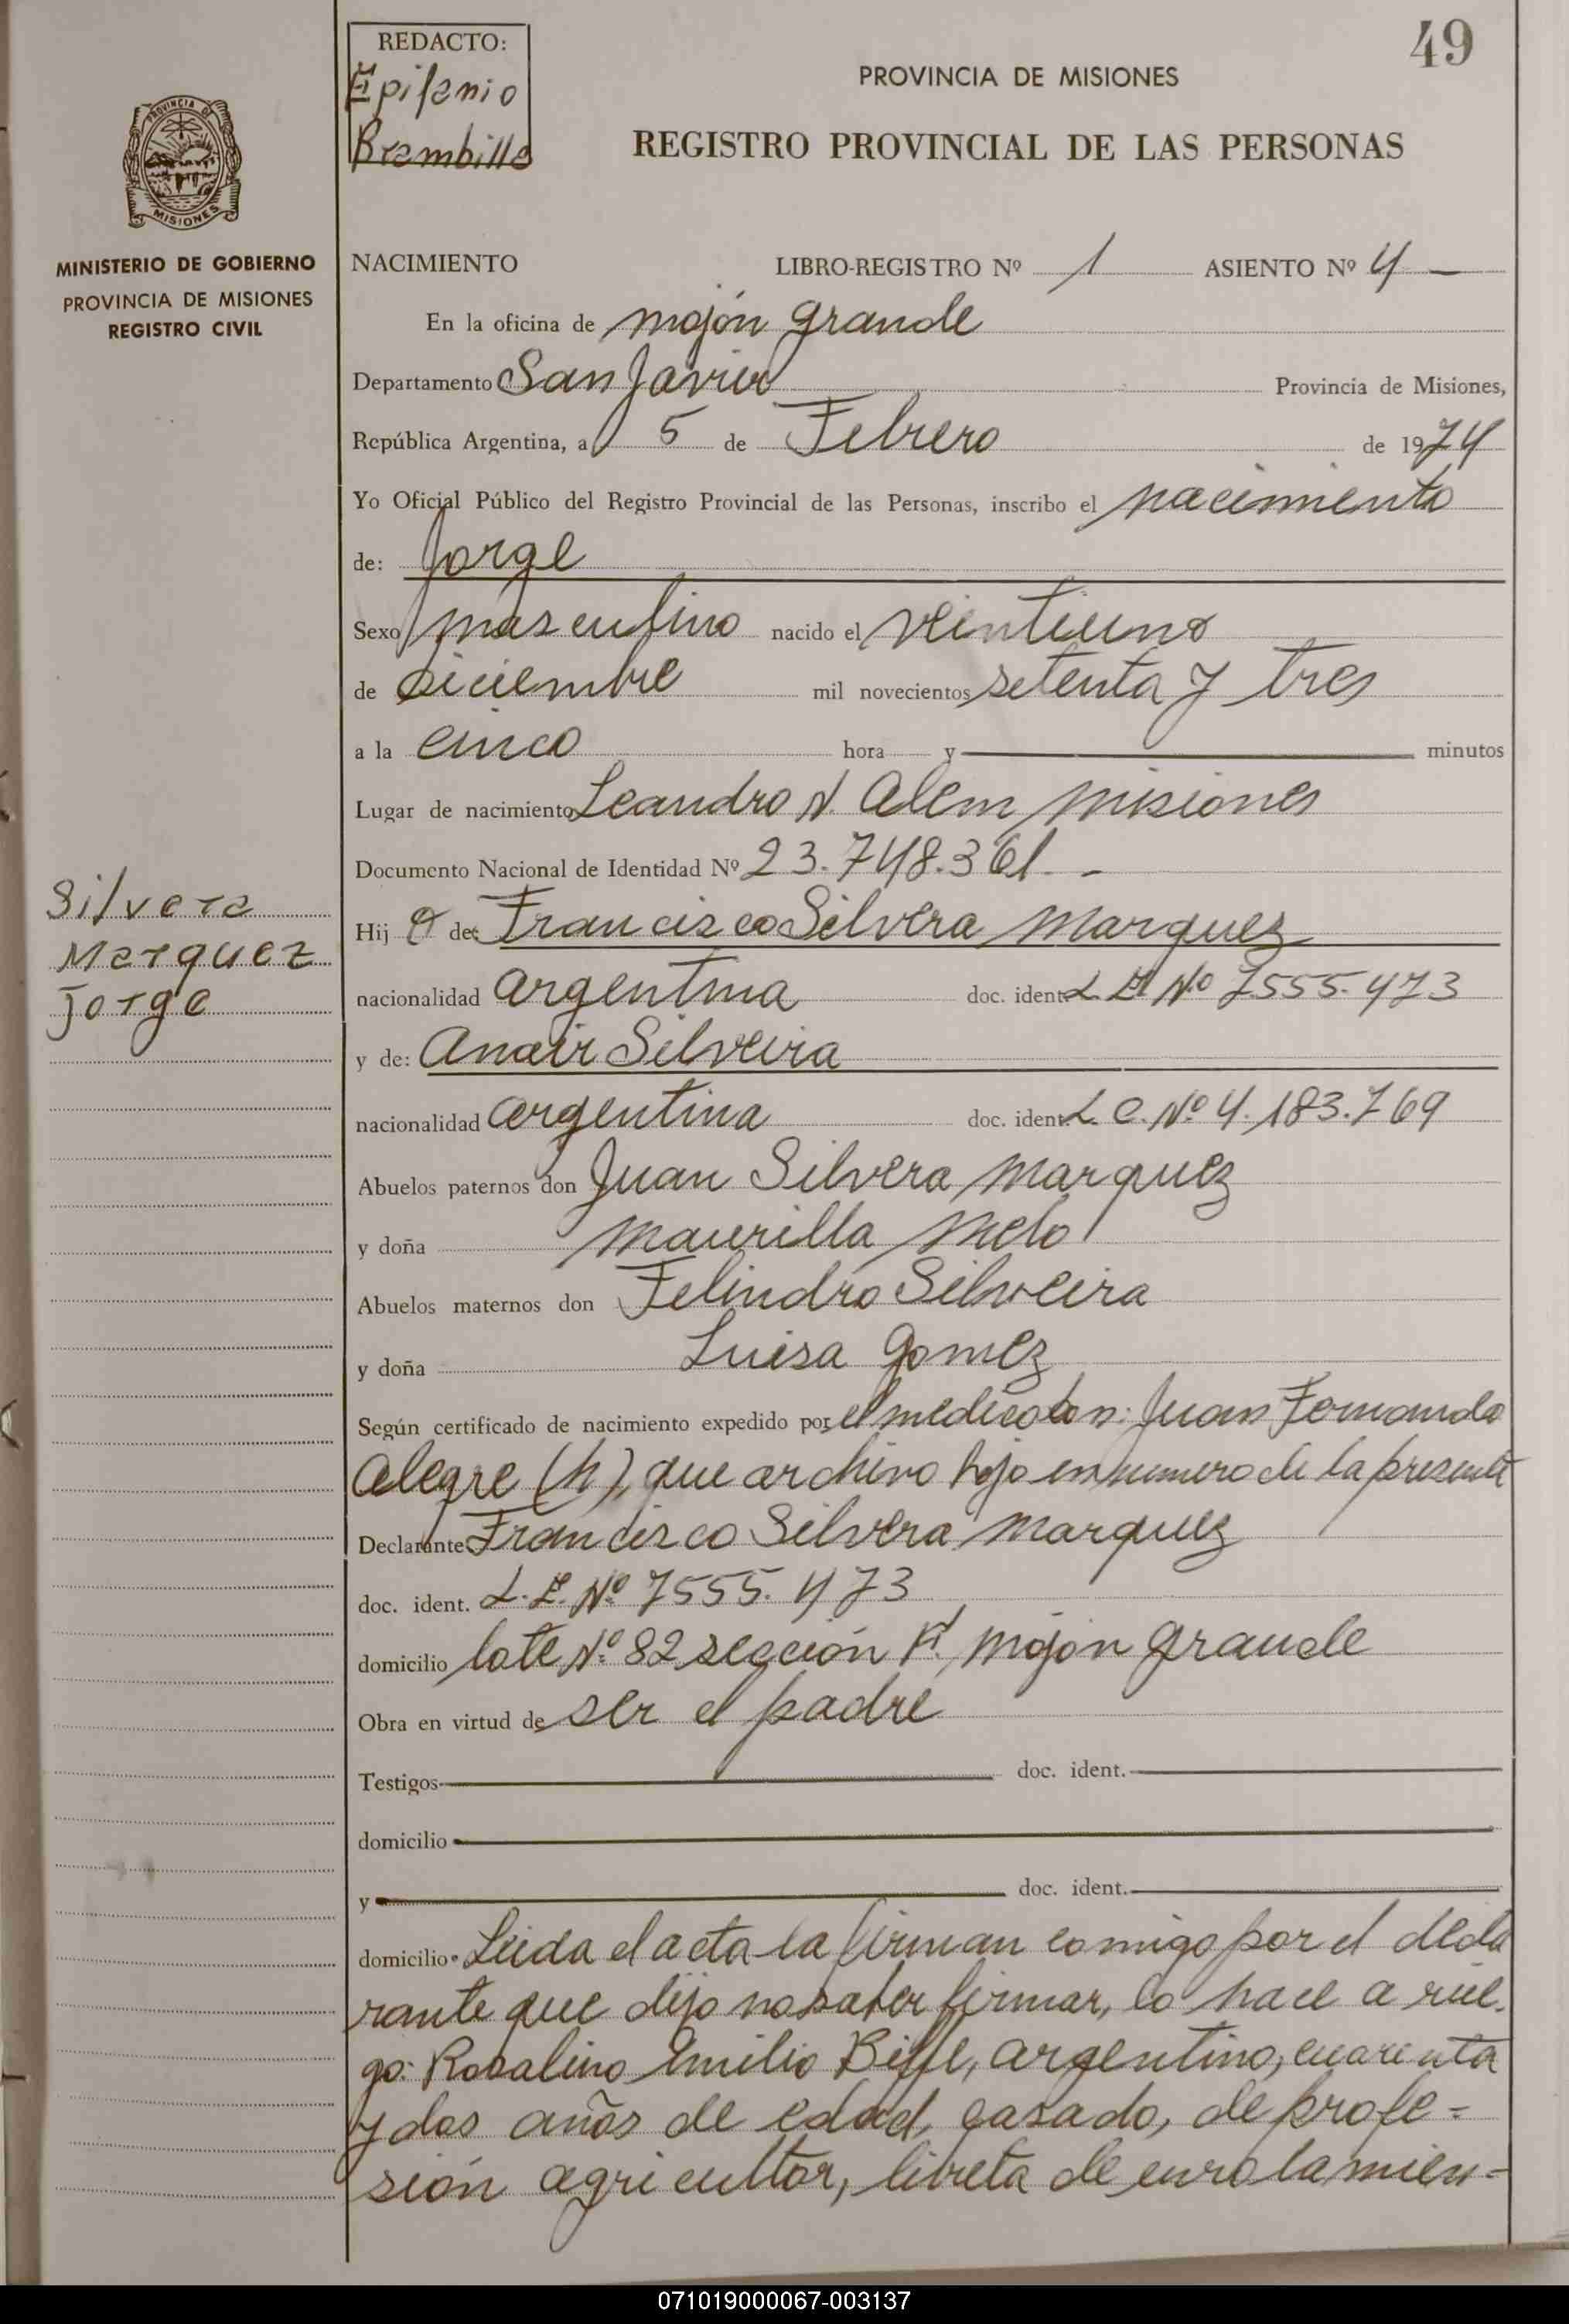 49
REDACTO:
Epifanio
Brambilla
PROVINCIA DE MISIONES
REGISTRO PROVINCIAL DE LAS PERSONAS
PROVINCIA DE
MISIONES
MINISTERIO DE GOBIERNO
PROVINCIA DE MISIONES
REGISTRO CIVIL
NACIMIENTO LIBRO-REGISTRO Nº 1 ASIENTO Nº 4 —
En la oficina de mojón grande
Departamento San Javier Provincia de Misiones,
República Argentina, a 5 de Febrero de 1974
Yo Oficial Público del Registro Provincial de las Personas, inscribo el nacimiento
de: Jorge
Sexo masculino nacido el veintiuno
de diciembre mil novecientos setenta y tres
a la cinco hora y — minutos
Lugar de nacimiento Leandro N. Alem misiones
Documento Nacional de Identidad Nº 23.748.361.-
Silvera
Marquez
Jorge
Hij o de: Francisco Silvera Marquez
nacionalidad argentina doc. ident. L E Nº 7555.473
y de: Anair Silveira
nacionalidad argentina doc. ident. L. C. Nº 4.183.769
Abuelos paternos don Juan Silvera Marquez
y doña Maurilla Melo
Abuelos maternos don Felindro Silveira
y doña Luisa Gomez
Según certificado de nacimiento expedido por el medico Juan Fernando
Alegre (h), que archivo bajo en numero de la presente
Declarante Francisco Silvera Marquez
doc. ident. L.E. Nº 7555.473
domicilio lote Nº 82 sección mojón grande
Obra en virtud de ser el padre
Testigos doc. ident.
domicilio
y doc. ident.
domicilio Leida el acta la firman comigo por el decla
rante que dijo no saber firmar, lo hace a rue-
go: Rosalino Emilio Biffe, argentino, cuarenta
y dos años de edad, casado, de profe=
sión agricultor, libreta de enrolamien=
071019000067-003137